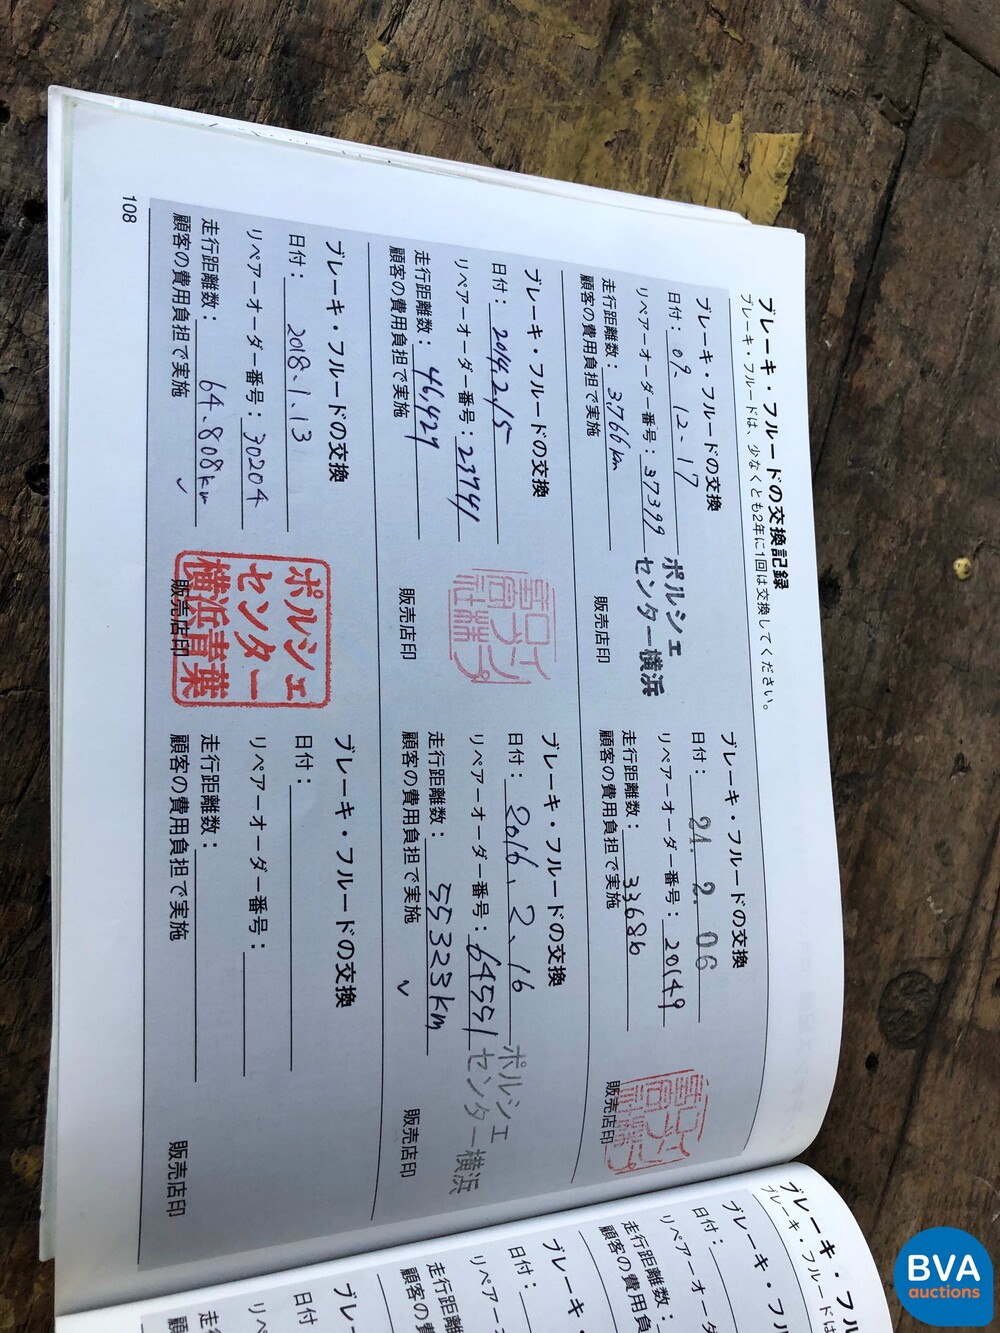 ブレーキ・フルードの交換記録
ブレーキ・フルードは、少なくとも2年に1回は交換してください。
ブレーキ・フルードの交換
日付：09.12.17
リペアーオーダー番号：37399
走行距離数：3766km
顧客の費用負担で実施
ポルシェ
センター横浜
販売店印
ブレーキ・フルードの交換
日付：24.2.06
リペアーオーダー番号：20149
走行距離数：33686
顧客の費用負担で実施
販売店印
ブレーキ・フルードの交換
日付：2014.2/15
リペアーオーダー番号：23741
走行距離数：46,429
顧客の費用負担で実施
販売店印
ブレーキ・フルードの交換
日付：2016.2.16
リペアーオーダー番号：64551
走行距離数：55323km
顧客の費用負担で実施
ポルシェ
センター横浜
販売店印
ブレーキ・フルードの交換
日付：2018.1.13
リペアーオーダー番号：30204
走行距離数：64.808km
顧客の費用負担で実施
ポルシェ
センター
横浜青葉
販売店印
ブレーキ・フルードの交換
日付：
リペアーオーダー番号：
走行距離数：
顧客の費用負担で実施
販売店印
108
ブレーキ・フル
ブレーキ・フルードは
ブレーキ・フル
日付：
リペアーオーダ
走行距離数：
顧客の費用
ブレーキ・
日付：
リペアー
走行距離数：
顧客の費
ブレ
日付
リペ
走行
顧客
BVA
auctions